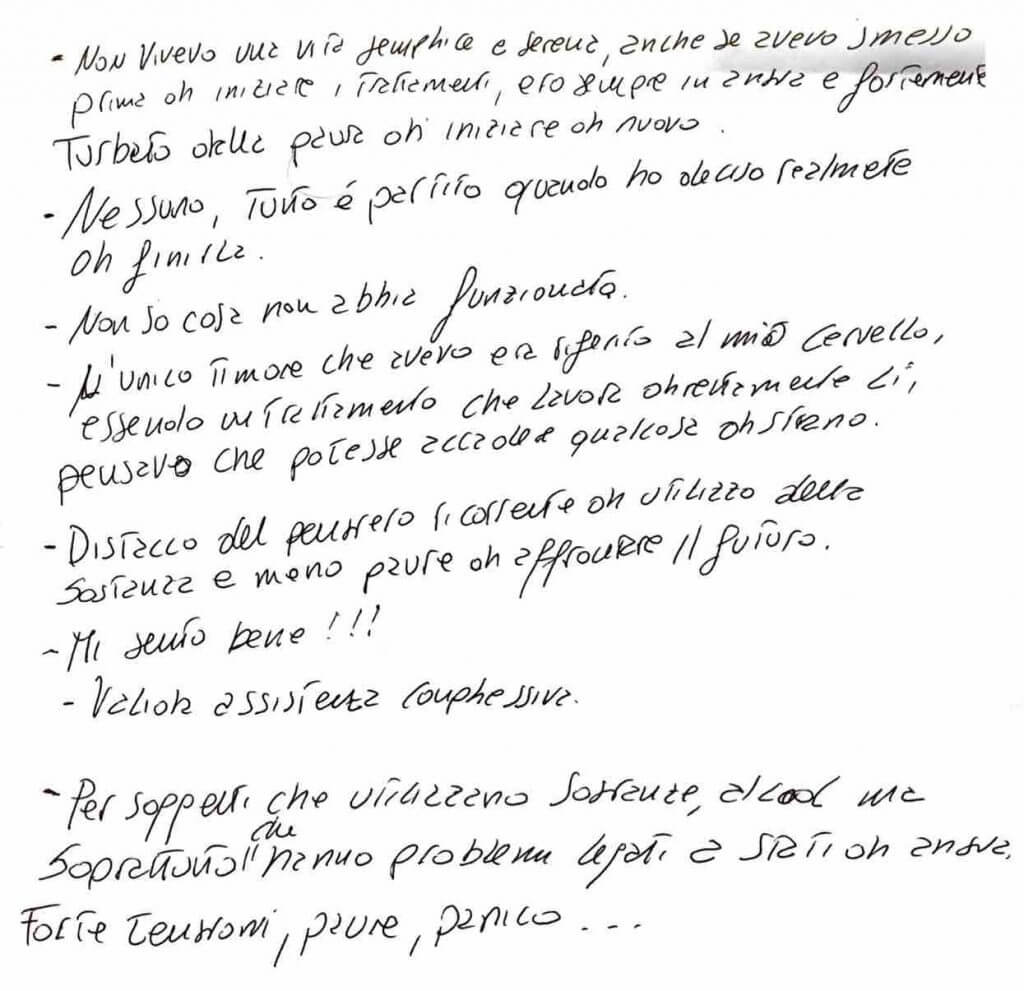 - Non vivevo una vita semplice e serena, anche se avevo smesso
prima di iniziare i trattamenti, ero sempre in ansia e fortemente
Turbato dalla paura di iniziare di nuovo.
- Nessuno, Tutto é partito quando ho deciso realmete
di finirla.
- Non so cosa non abbia funzionato.
- L'unico timore che avevo era riferito al mio cervello,
essendo un trattamento che lavora direttamente lì,
pensavo che potesse accadere qualcosa di strano.
- Distacco del pensiero ricorrente di utilizzo della
sostanza e meno paure di affrontare il futuro.
- Mi sento bene!!!
- Valida assistenza complessiva.
- Per soggetti che utilizzano sostanze, alcool ma
soprattutto " che hanno problemi legati a stati di ansia,
Forte tensioni, paure, panico ...